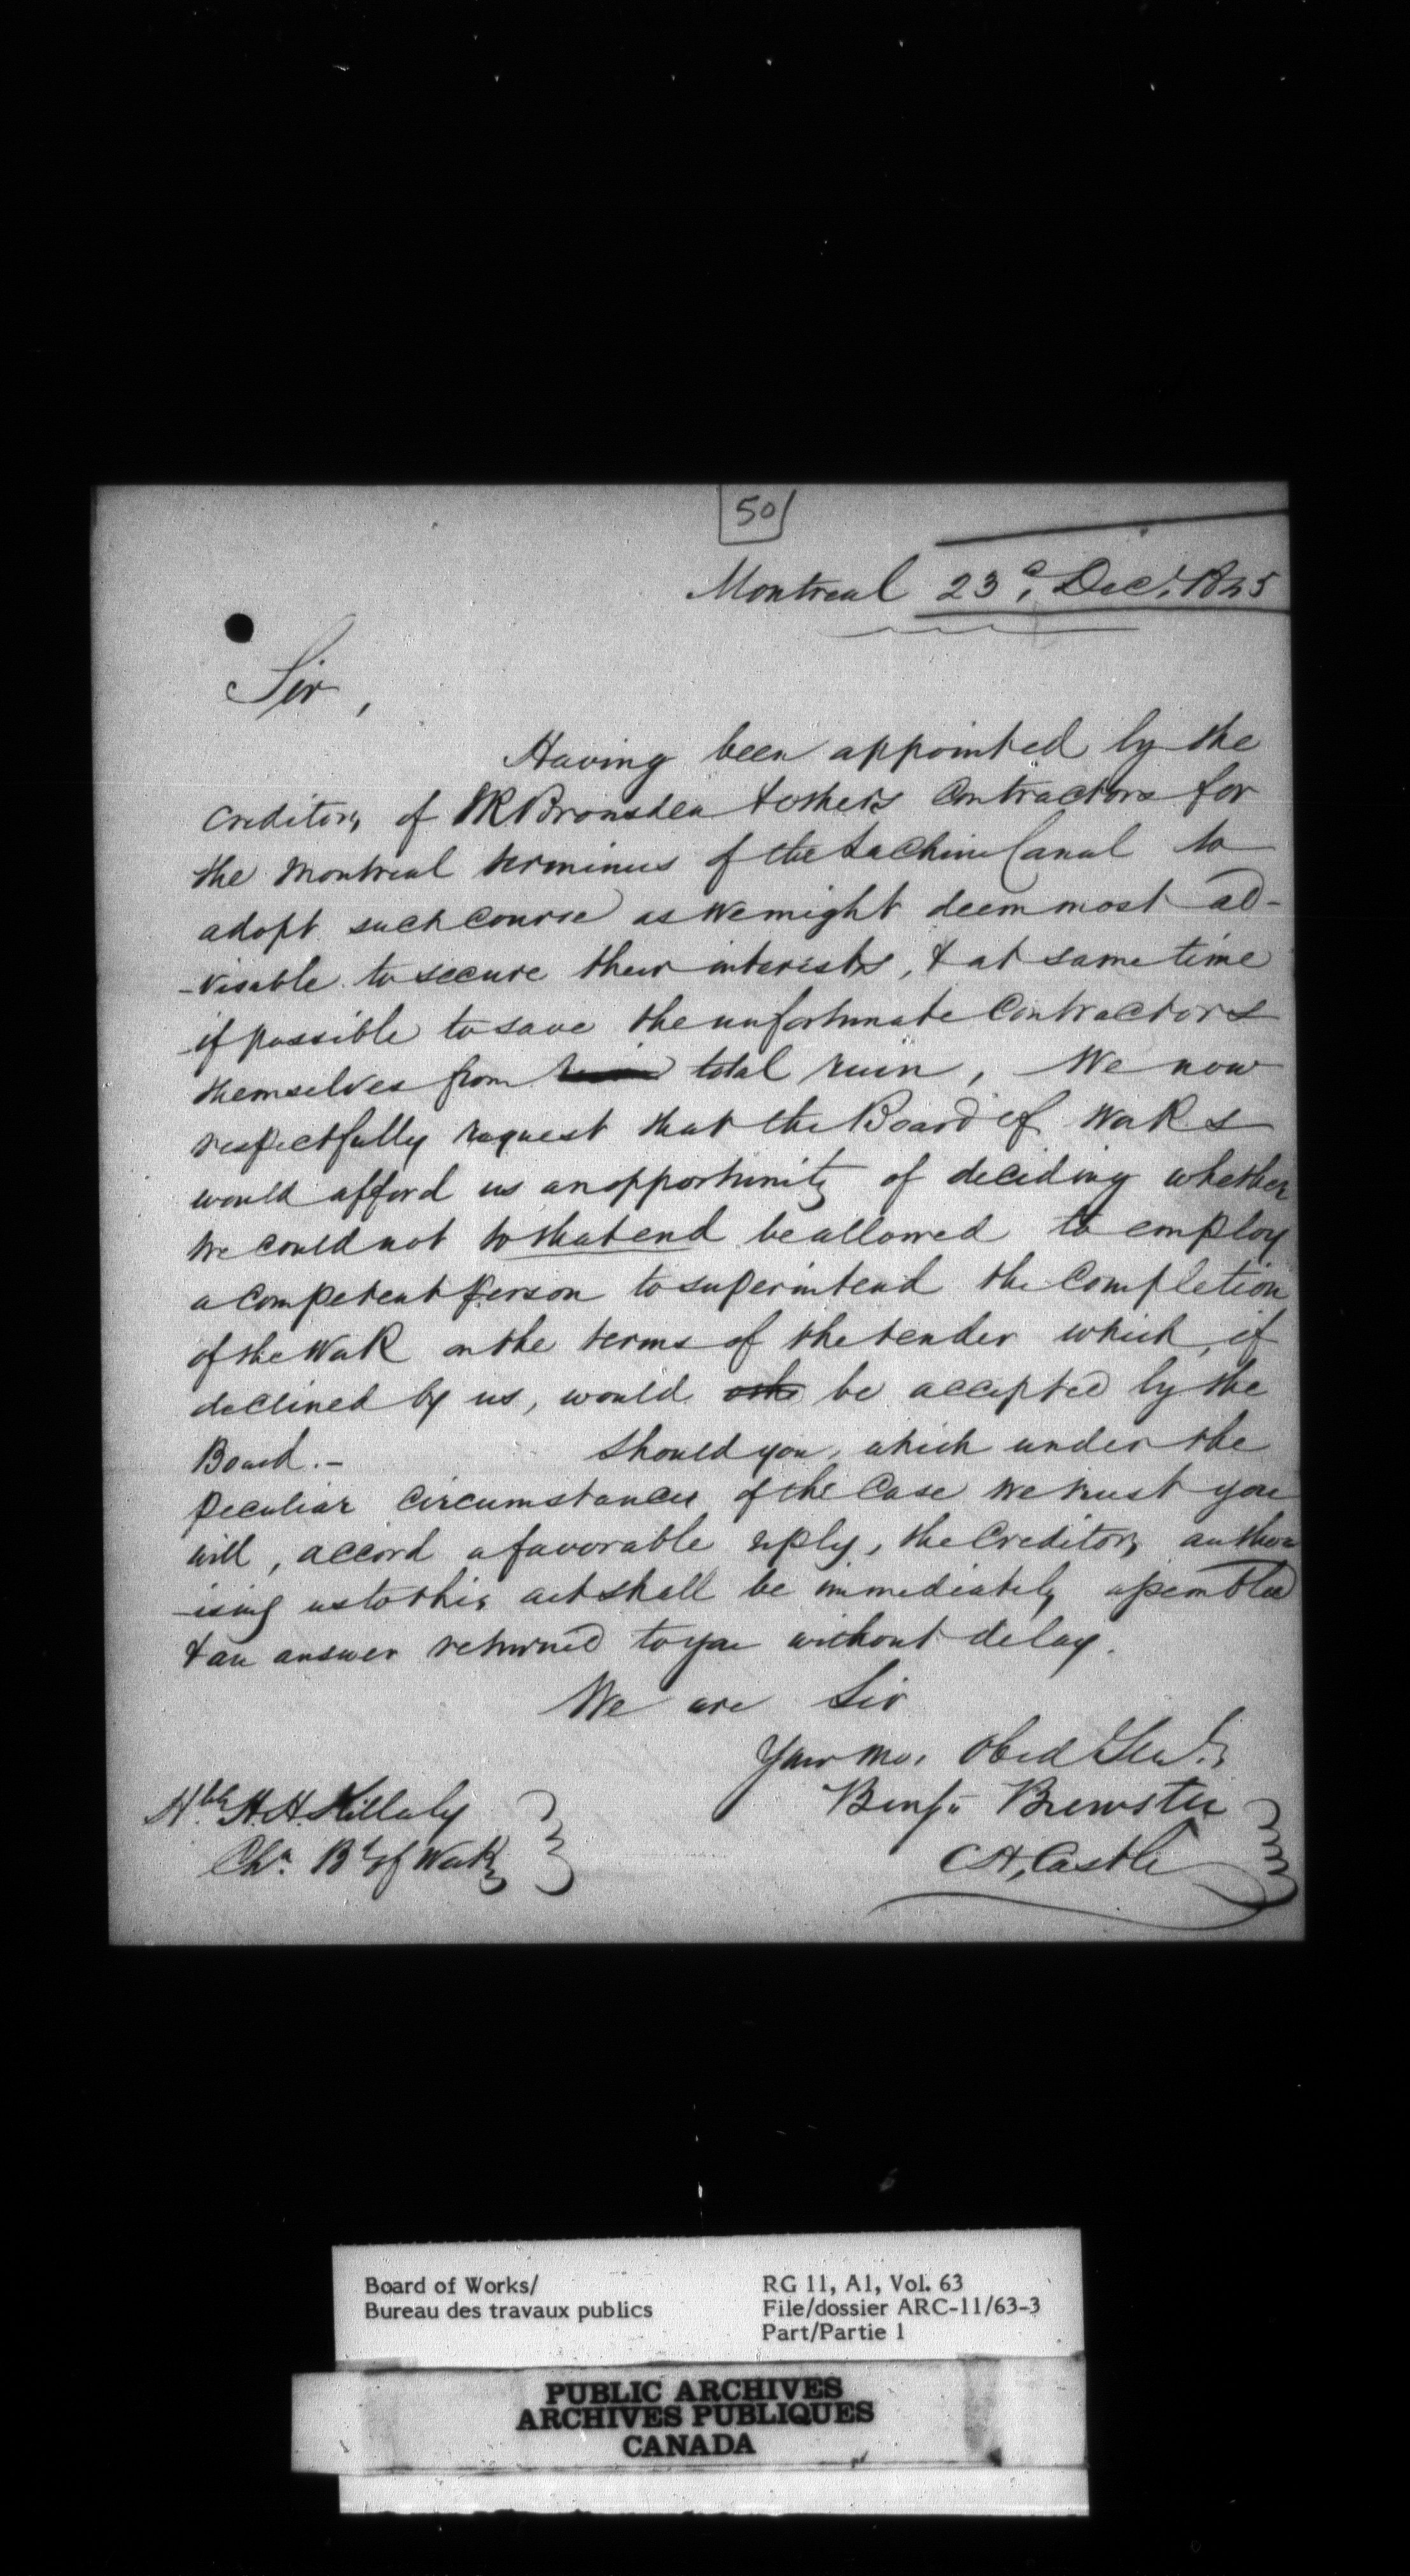 50
Montreal 23d, Decr. 1845
Sir,
Having been appointed by the
creditors of Bronsden & others Contractors for
the Montreal terminus of the Lachine Canal to
adopt such course as we might deem most ad-
-visable to secure their interests, & at same time
if possible to save the unfortunate Contractors
themselves from ruin total ruin, We now
respectfully request that the Board of Works
would afford us an opportunity of deciding whether
we could not to that end be allowed to employ
a competent person to superintend the completion
of the Work on the terms of the tender which, if
declined by us, would be accepted by the
Board.- Should you, which under the
peculiar circumstances of the Case we trust you
will, accord a favorable reply, the Creditors author
-ising us to this act shall be immediately assembled
& an answer returned to you without delay.
We are Sir
Your mo. Obed Servts.
Benjn Brewster
C H, Castle
Hble H. H. Killaly
Chn. Bd of Works
Board of Works/
Bureau des travaux publics
RG 11, A1, Vol. 63
File/dossier ARC-11/63-3
Part/Partie 1
PUBLIC ARCHIVES
ARCHIVES PUBLIQUES
CANADA